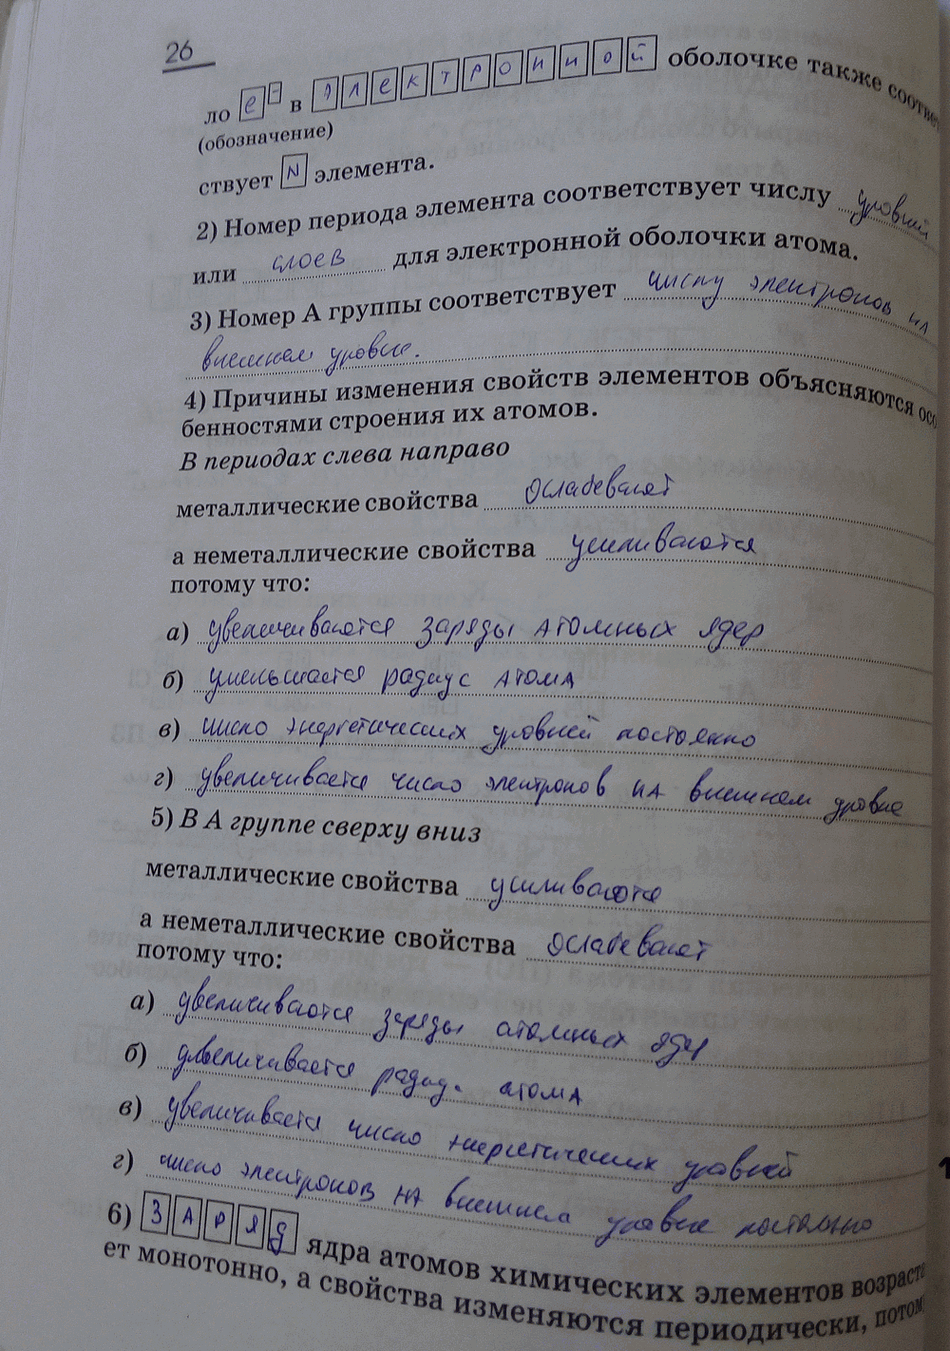 26
ло e⁻ в электронной оболочке также соответ
(обозначение)
ствует N элемента.
2) Номер периода элемента соответствует числу уровней
или слоев для электронной оболочки атома.
3) Номер А группы соответствует числу электронов на
внешнем уровне.
4) Причины изменения свойств элементов объясняются осо
бенностями строения их атомов.
В периодах слева направо
металлические свойства ослабевают
а неметаллические свойства усиливаются
потому что:
а) увеличиваются заряды атомных ядер
б) уменьшается радиус атома
в) число энергетических уровней постоянно
г) увеличивается число электронов на внешнем уровне
5) В А группе сверху вниз
металлические свойства усиливаются
а неметаллические свойства ослабевают
потому что:
а) увеличиваются заряды атомных ядер
б) увеличивается радиус атома
в) увеличивается число энергетических уровней
г) число электронов на внешнем уровне постоянно
6) ЗАРЯД ядра атомов химических элементов возраста
ет монотонно, а свойства изменяются периодически, потом